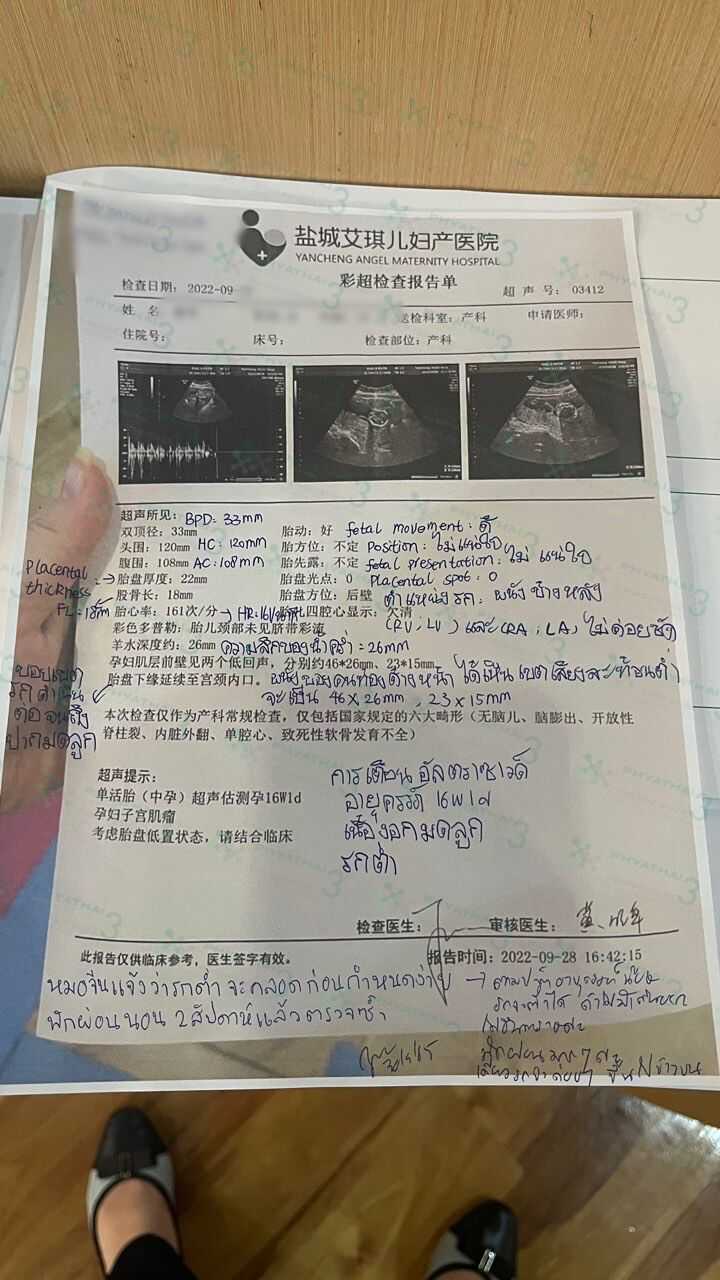 盐城艾琪儿妇产医院
YANCHENG ANGEL MATERNITY HOSPITAL
彩超检查报告单
检查日期: 2022-09
超 声 号: 03412
姓 名
送检科室: 产科
申请医师:
住院号:
床号:
检查部位: 产科
超声所见: BPD: 33mm
双顶径: 33mm 胎动: 好 fetal movement: ดี
头围: 120mm HC: 120mm 胎方位: 不定 Position: ไม่แน่ใจ
腹围: 108mm AC: 108mm 胎先露: 不定 fetal presentation: ไม่แน่ใจ
Placental thickness → 胎盘厚度: 22mm 胎盘光点: 0 Placental spot: 0
FL: 18mm 股骨长: 18mm 胎盘方位: 后壁 ตำแหน่งรก: ผนังข้างหลัง
胎心率: 161次/分 → HR 四腔心显示: 欠清
(RV; LV) และ (RA; LA) ไม่ค่อยชัด
彩色多普勒: 胎儿颈部未见脐带彩流
羊水深度约: 26mm ความลึกของน้ำคร่ำ = 26mm
孕妇肌层前壁见两个低回声, 分别约46*26mm、23*15mm
胎盘下缘延续至宫颈内口。 ผนังของคนท้องด้านหน้า ได้เห็นเขตเสียงสะท้อนต่ำ
จะเป็น 46 x 26mm , 23 x 15mm
ขอบเขต
รกดำเนิน
ต่อจนถึง
ปากมดลูก
本次检查仅作为产科常规检查, 仅包括国家规定的六大畸形 (无脑儿、脑膨出、开放性
脊柱裂、内脏外翻、单腔心、致死性软骨发育不全)
超声提示:
单活胎 (中孕) 超声估测孕16W1d
孕妇子宫肌瘤
考虑胎盘低置状态, 请结合临床
การเตือน อัลตราซาวด์
อายุครรภ์ 16W1d
เนื้องอกมดลูก
รกต่ำ
检查医生:
审核医生:
此报告仅供临床参考, 医生签字有效。
报告时间: 2022-09-28 16:42:15
หมอจีนแจ้งว่ารกต่ำ จะคลอดก่อนกำหนดง่าย
พักผ่อนนอน 2 สัปดาห์แล้วตรวจซ้ำ
PHYATHAI 3